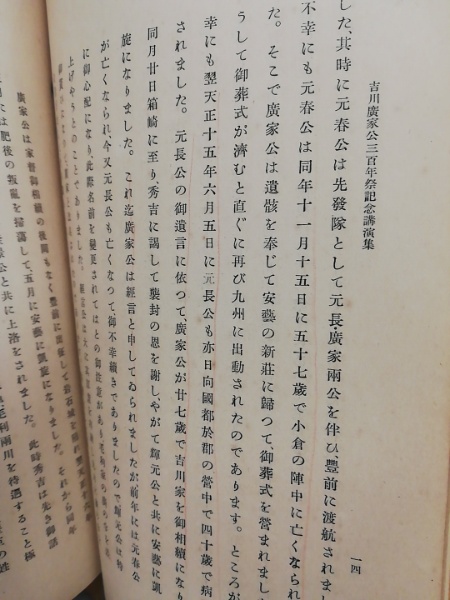 吉川廣家公三百年祭記念講演集
一四
した、其時に元春公は先發隊として元長、廣家兩公を伴ひ、豐前に渡航されまし
不幸にも元春公は同年十一月十五日に五十七歳で小倉の陣中に亡くなられ
た。そこで廣家公は遺骸を奉じて安藝の新莊に歸つて、御葬式を營まれまし
うして御葬式が濟むと直ぐに再び九州に出動されたのであります。ところが
幸にも翌天正十五年六月五日に元長公も亦日向國都於郡の營中で四十歳で病
されました。元長公の御遺言に依つて、廣家公が廿七歳で吉川家を御相續になり
同月廿日箱崎に至り、秀吉に謁して襲封の恩を謝し、やがて輝元公と共に安藝に凱
旋になりました。これ迄廣家公は經言と申してゐられましたが前年には元春公
が亡くなられ、今又元長公も亡くなつて、御不幸續きでありましたので輝元公は特
に御心配になり、此際名前を變更されてはとの御注意があり
上げやうとのことでありました。
廣家公は家督御相續の後間もなく豐前に出征して
は肥後の叛亂を掃蕩して、五月に安藝に凱旋になりました。それから同年
公と共に上洛をされました。此時秀吉は先き御諸
毛利兩川を待遇すること極